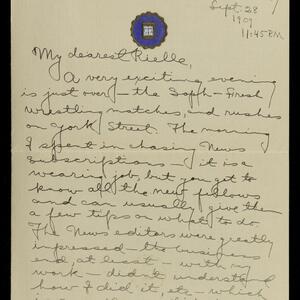 Sept. 28
1909
11:45 P.M.
My dearest Rielle,
A very exciting evening
is just over — the Soph-Fresh
wrestling matches, and rushes
on York Street. The morning
I spent in chasing News
subscriptions — it is a
wearing job, but you get to
know all the new fellows
and can usually give them
a few tips on what to do.
The News editors were greatly
impressed — its business
end, at least — with my
work — didn't understand
how I did it, etc — which